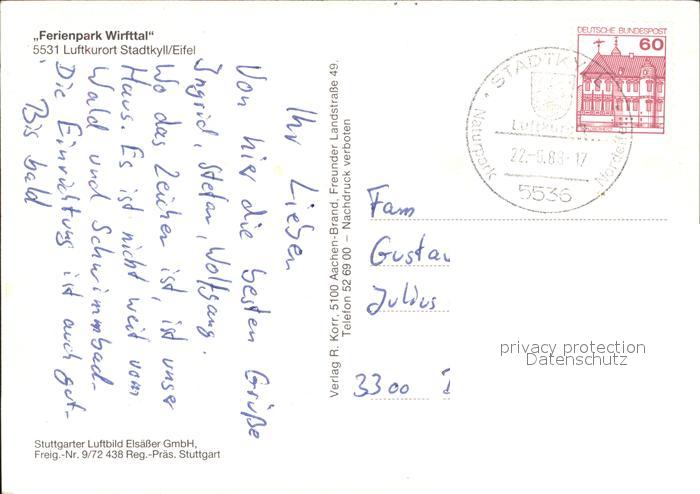 „Ferienpark Wirfttal“
5531 Luftkurort Stadtkyll/Eifel
Ihr Lieben
Von hier die besten Grüße
Ingrid, Stefan, Wolfgang.
Wo das Zeichen ist, ist unser
Haus. Es ist nicht weit vom
Wald und Schwimmbad.
Die Einrichtung ist auch gut.
Bis bald
Stuttgarter Luftbild Elsäßer GmbH,
Freig.-Nr. 9/72 438 Reg.-Präs. Stuttgart
Verlag R. Korr, 5100 Aachen-Brand, Freunder Landstraße 49.
Telefon 52 69 00 – Nachdruck verboten
DEUTSCHE BUNDESPOST
60
STADTKYLL
Luftkurort
22.-6.88-17
Naturpark Nordeifel
5536
Fam
Gustav
Julius
3300
privacy protection
Datenschutz